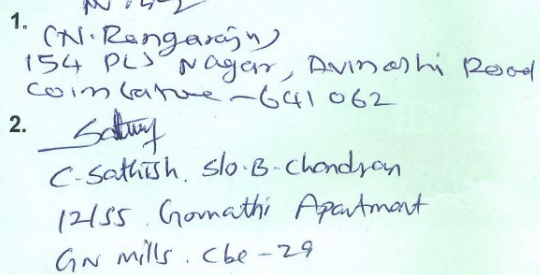 1.
(N. Rengarajn)
154 PLS Nagar, Avinashi Road
Coimbatore - 641 062
2.
C. Sathish. S/o. B. Chandran
12/55. Gomathi Apartment
GN mills. Cbe - 29